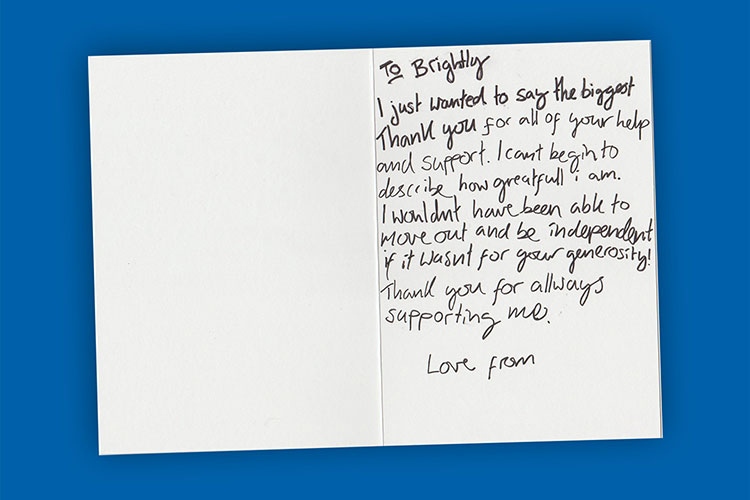 To Brightly
I just wanted to say the biggest
Thank you for all of your help
and support. I cant begin to
describe how greatfull i am.
I wouldnt have been able to
move out and be independent
if it wasnt for your generosity!
Thank you for allways
supporting me.
Love from